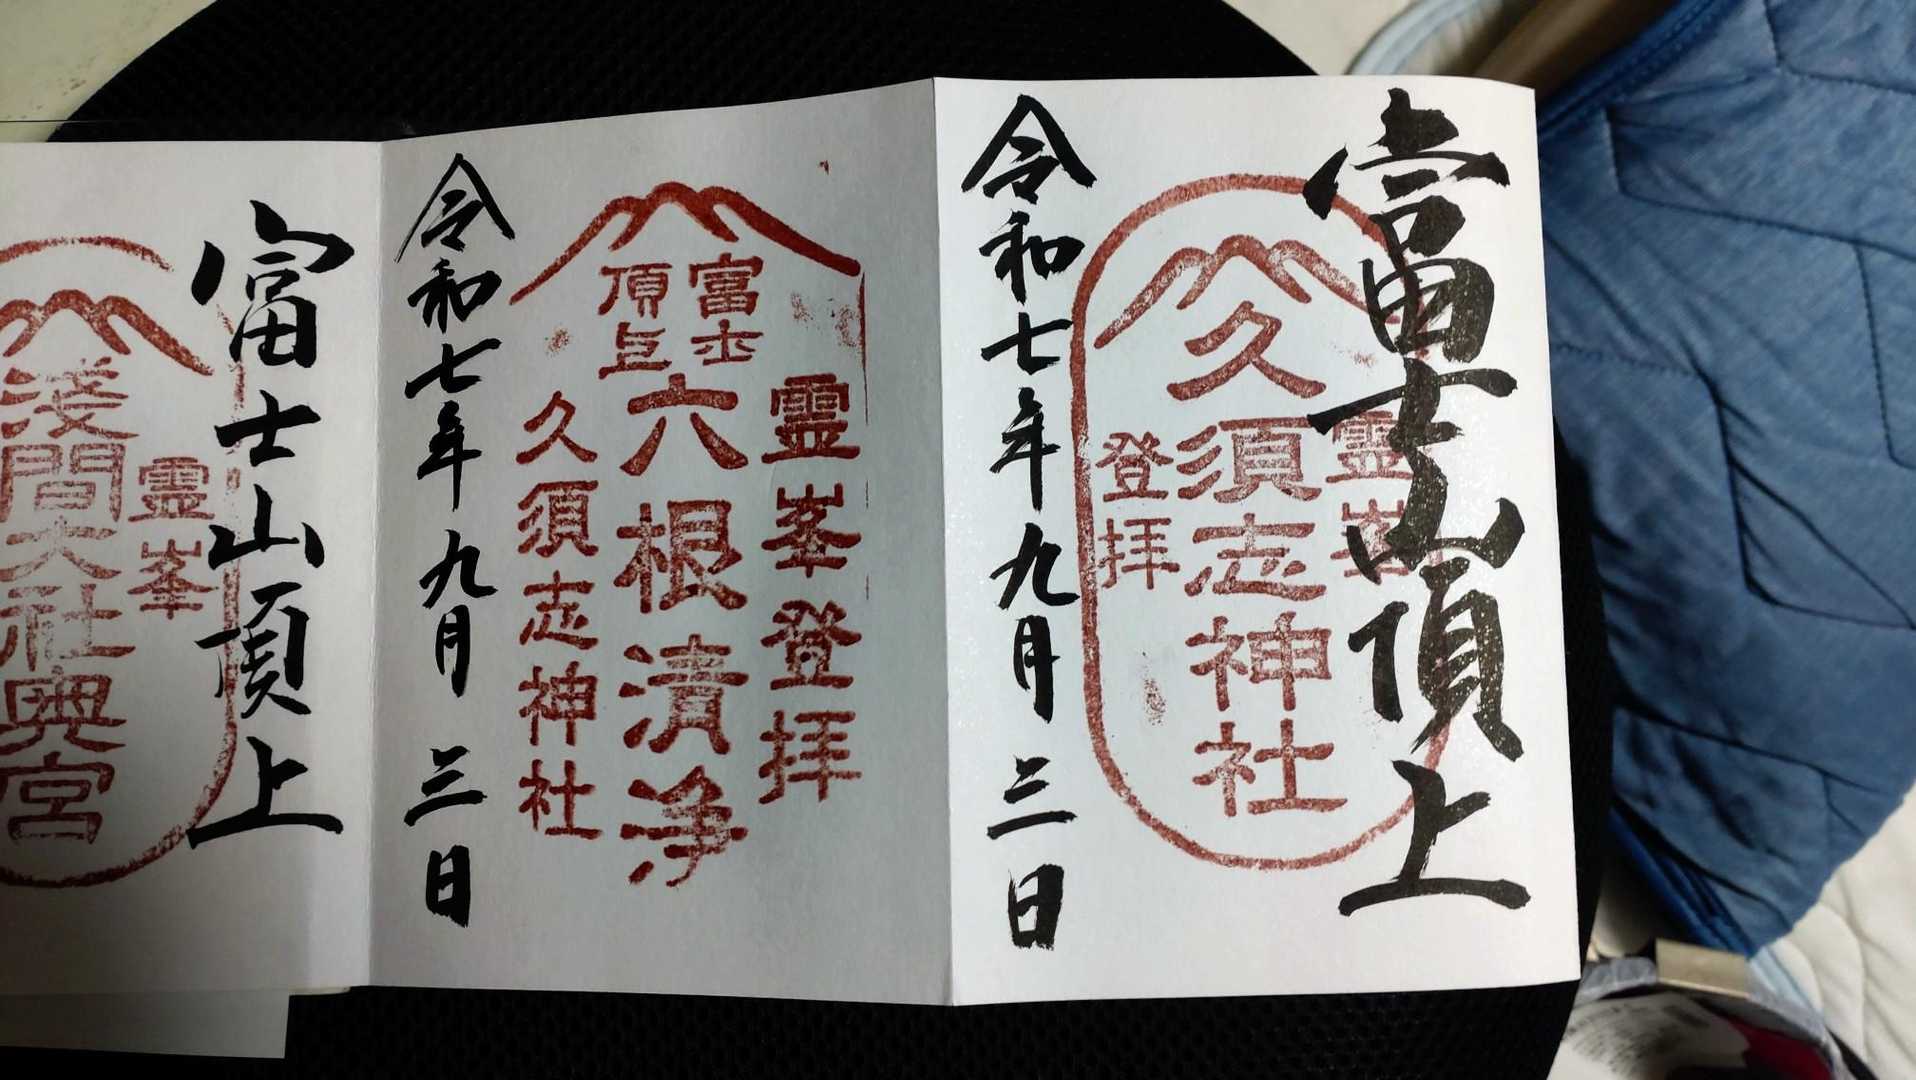 富士山頂上
霊峯
久須志神社
登拝
令和七年九月三日
霊峯登拝
富士
頂上
六根清浄
久須志神社
令和七年九月三日
富士山頂上
霊峯
浅間大社奥宮